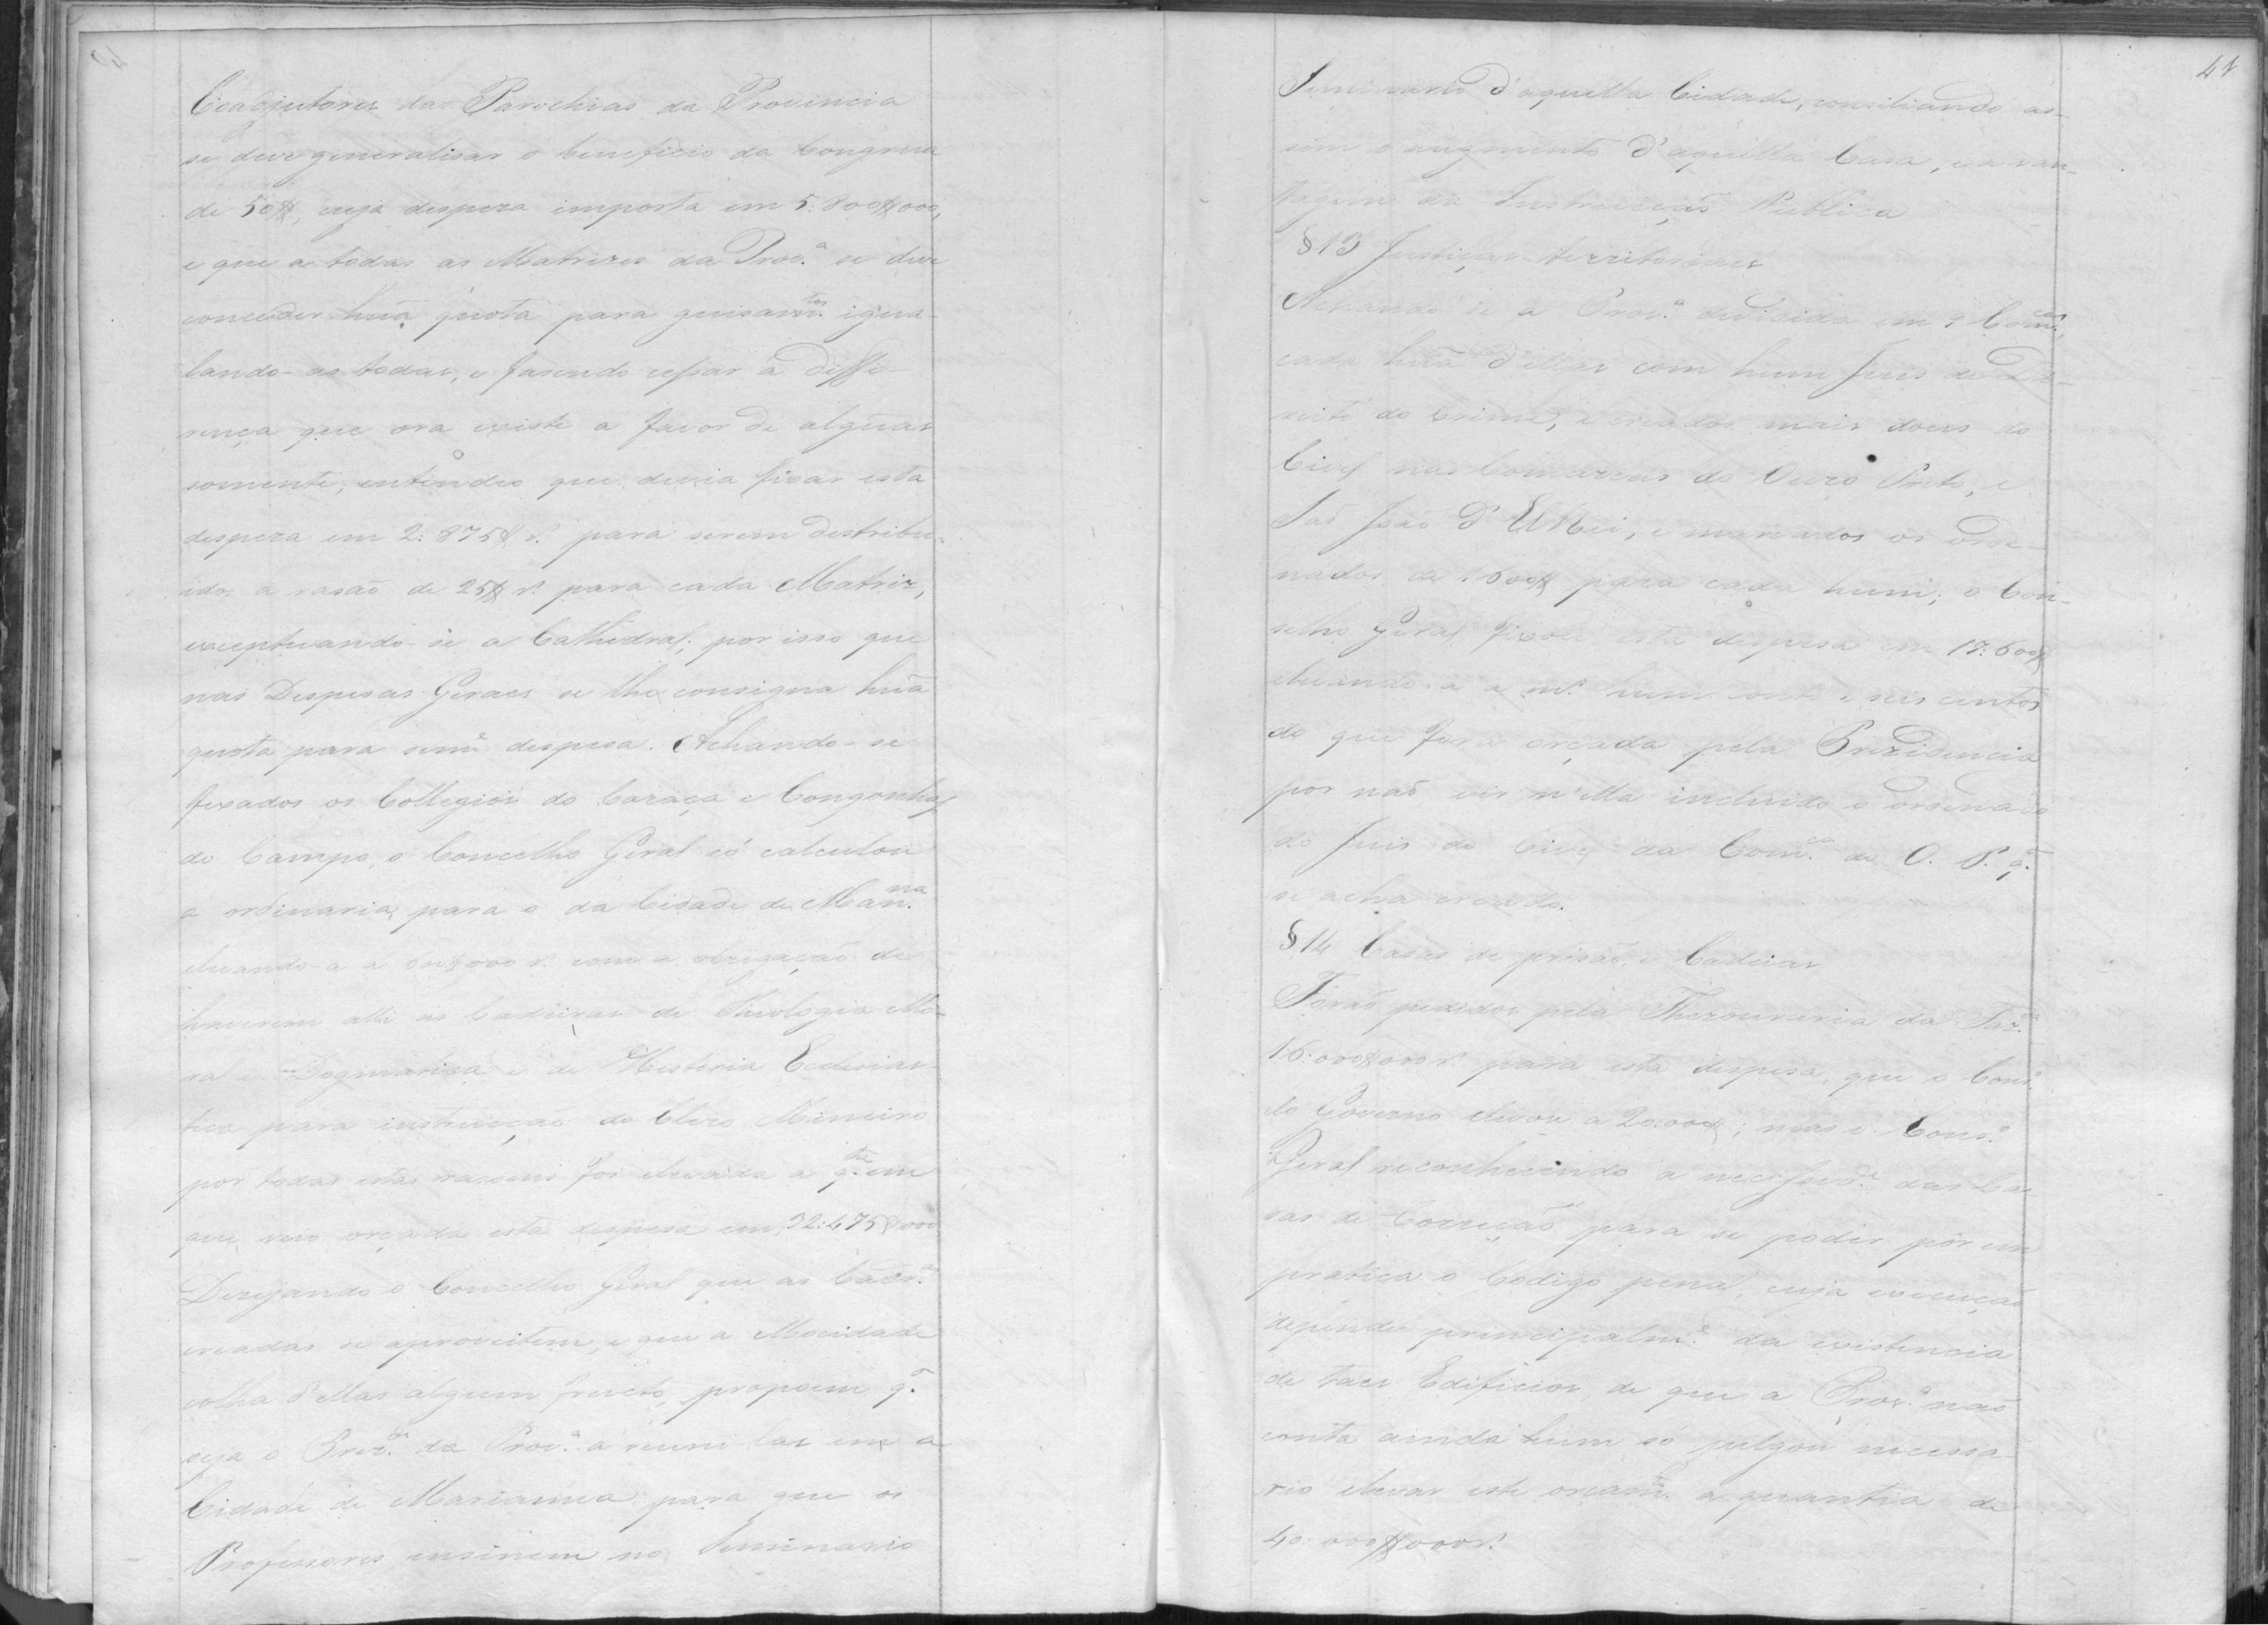 Coadjutores das Parochias da Provincia
se deve generalisar o beneficio da Congrua
de 50$, cuja despeza importa em 5:800$000,
e que a todas as Matrizes da Prov.ª se deve
conceder huã quota para guisam.tos igua-
lando-as todas, e fasendo cessar a diffe-
rença que ora existe a favor de algũas
somente, entendeo que devia fixar esta
despeza em 2:875$ r.s para serem destribu-
idos a rasaõ de 25$ r.s para cada Matriz,
exceptuando-se a Cathedral; por isso que
nas Despesas Geraes se lhe consigna huã
quota para sem.e despesa. Achando-se
fixados os Collegios do Caraça e Congonhas
do Campo, o Concelho Geral só calculou
a ordinaria para o da Cidade de Man.na
elevando-a a 800$000 r.s com a obrigaçaõ de
haverem alli as Cadeiras de Theologia Mo-
ral e Dogmatica e de Historia Ecclesias-
tica para instrucçaõ do Clero Mineiro
por todas estas rasoens foi elevada a q.tia em
que veio orçada esta despesa em 32:475$000
Desejando o Concelho Geral que as Cadr.as
creadas se aproveitem, e que a Mocidade
colha d'ellas algum fructo, propoem q.
seja o Prez.de da Prov.ª a reuni las em a
Cidade de Marianna para que os
Professores ensinem no Seminario
41
Seminario d'aquella Cidade, conciliando as-
sim o augmento d'aquella Casa, e a van-
tagem da Instrucçaõ Publica
§ 13 Justiças territoriaes
Achando se a Prov.ª dividida em 9 Com.cas,
cada huã d'ellas com hum Juis de Di-
reito do crime, e creados mais dous do
Civel nas Comarcas do Ouro Preto, e
Saõ Joaõ d'ElRei, e marcados os orde-
nados de 1:600$ para cada hum; o Con-
selho Geral fixou esta despesa em 17:600$
elevando-a a m.s hum conto e seis centos
do que fora orçada pela Prezidencia
por naõ vir n'ella incluido o ordenado
do Juis do Civel da Com.ca do O. P. q.
se acha creado.
§ 14 Casas de prisaõ, e Cadeias
Foraõ pedidos pela Thezouraria da Faz.da
16:000$000 r.s para esta despesa, que o Cons.o
do Governo elevou a 20:000$; mas o Cons.o
Geral reconhecendo a necessid.e das Ca-
sas de Correiçaõ para se poder pôr em
pratica o Codigo penal, cuja execuçaõ
depende principalm.e da existencia
de taes Edificios, de que a Prov.ª naõ
conta ainda hum só julgou necessa-
rio elevar este orçam.to a quantia de
40:000$000 r.s